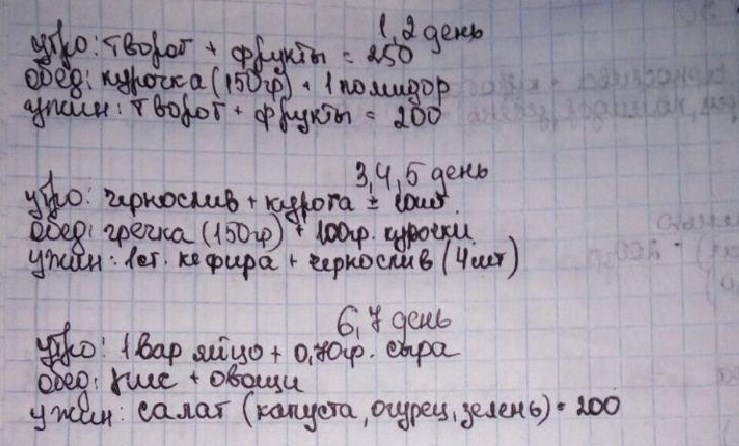 1,2 день
утро: творог + фрукты = 250
обед: курочка (150гр) + 1 помидор
ужин: творог + фрукты = 200
3,4,5 день
утро: чернослив + курага = 10шт.
обед: гречка (150гр) + 100гр. курочки
ужин: 1ст. кефира + чернослив (4шт)
6,7 день
утро: 1 вар яйцо + 0,70гр. сыра
обед: рис + овощи
ужин: салат (капуста, огурец, зелень) = 200